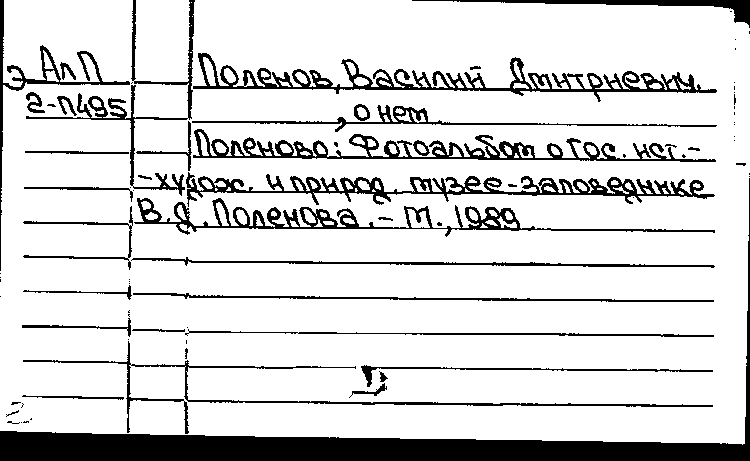 Э АлП
2-П495
Поленов, Василий Дмитриевич.
, о нем
Поленово: Фотоальбом о Гос. ист.-
-худож. и природ. музее-заповеднике
В.Д. Поленова. - М., 1989